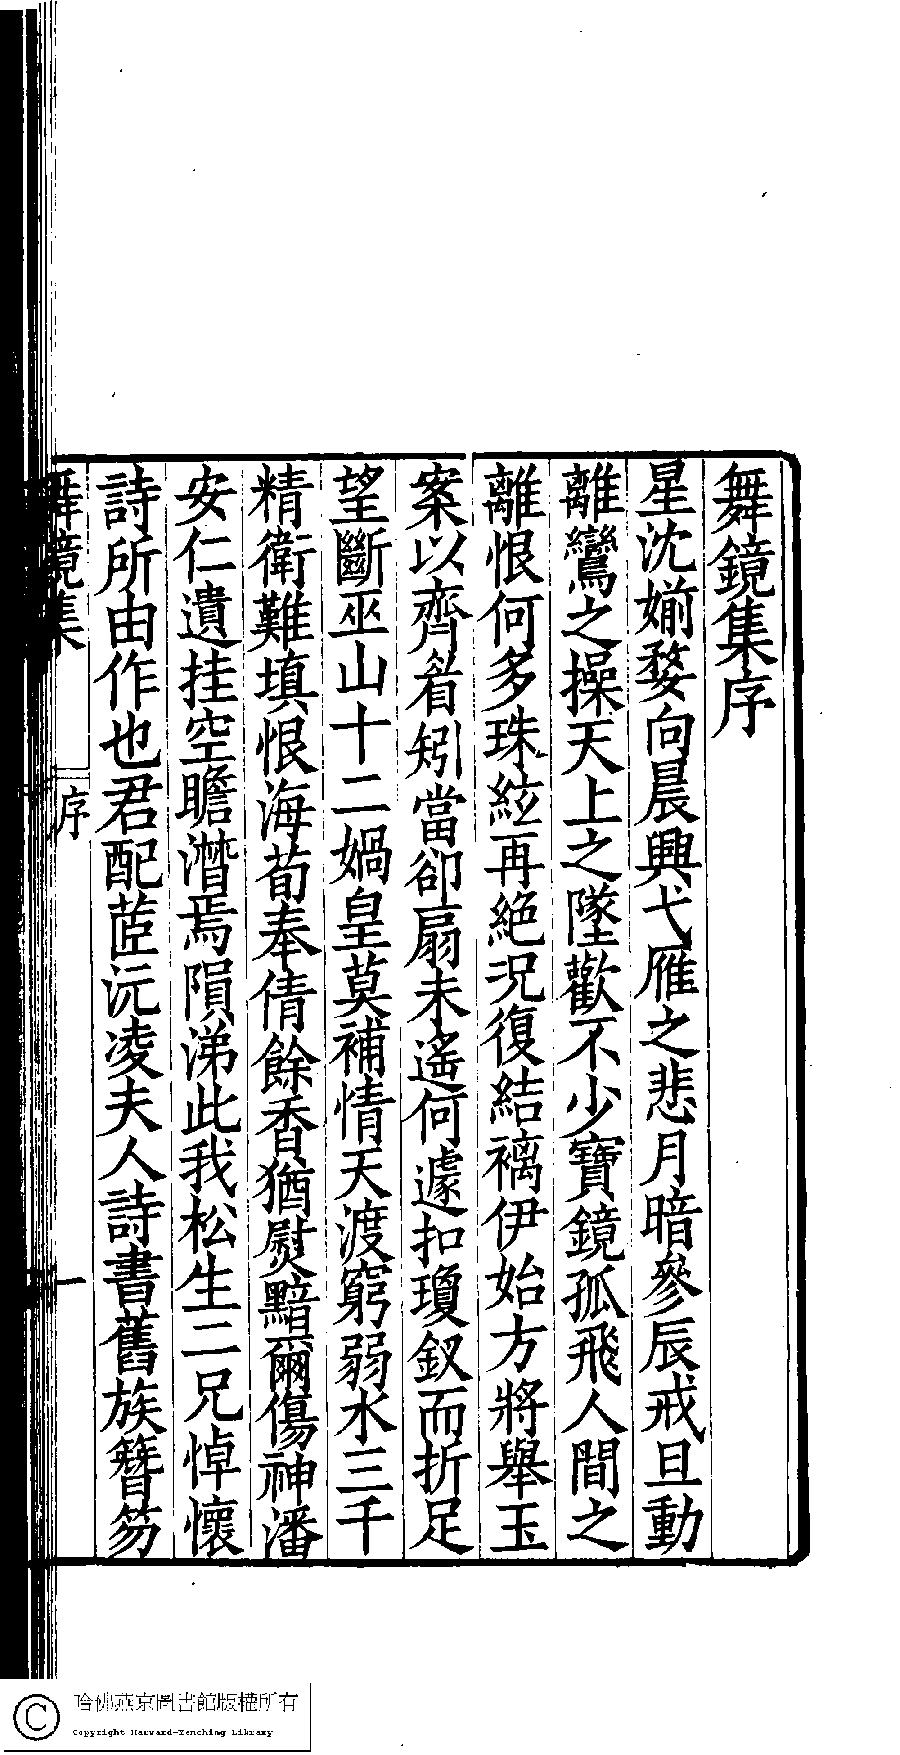 舞鏡集序
星沈婺婺向晨興弋雁之悲月暗參辰戒旦動
離鸞之操天上之墜歡不少寶鏡孤飛人間之
離恨何多珠絃再絕況復結褵伊始方將舉玉
案以齊眉矧當卻扇未遙何遽扣瓊釵而折足
望斷巫山十二媧皇莫補情天渡窮弱水三千
精衛難填恨海荀奉倩餘香猶熨黯爾傷神潘
安仁遺挂空瞻潸焉隕涕此我松生二兄悼懷
詩所由作也君配茝沅凌夫人詩書舊族簪笏
舞鏡集
序
一
哈佛燕京圖書館版權所有
Copyright Harvard-Yenching Library